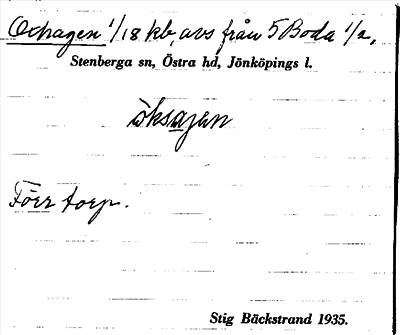 Oxhagen 1/18 kb, avs från 5 Boda 1/2,
Stenberga sn, Östra hd, Jönköpings l.
öksagen
Förr torp.
Stig Bäckstrand 1935.